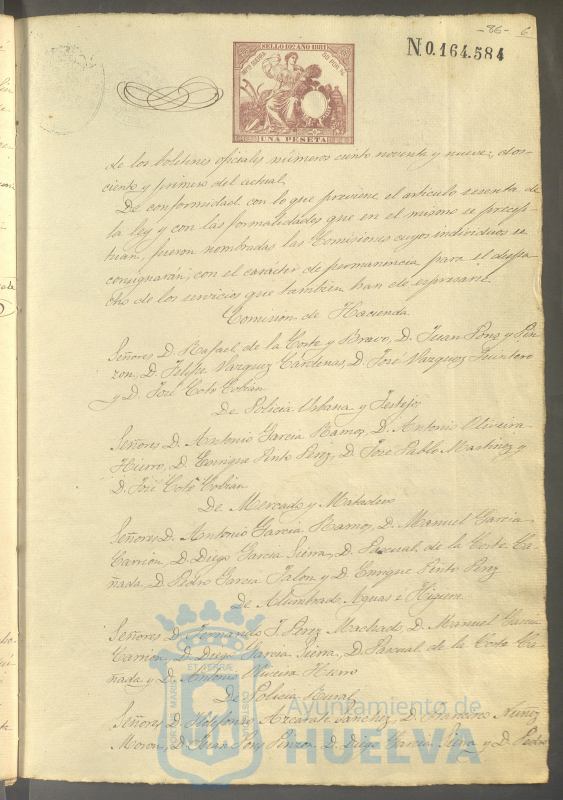 -86- 6
SELLO 10º AÑO 1881
N 0.164.584
UNA PESETA
de los boletines oficiales números ciento noventa y nueve, dos-
ciento y primero del actual.
De conformidad con lo que previene el articulo sesenta de
la ley y con las formalidades que en el mismo se precep-
tuan, fueron nombradas las Comisiones cuyos individuos se
consignarán, con el carácter de permanencia para el despa-
cho de los servicios que tambien han de espresarse.
Comision de Hacienda
Señores D. Rafael de la Corte y Bravo, D. Juan Pons y Pin-
zon, D. Felipe Vazquez Cárdenas, D. José Vazquez Quintero
y D. José Coto Cobian
De Policia Urbana y Festejos
Señores D. Antonio Garcia Ramos, D. Antonio Oliveira
Hierro, D. Enrique Pinto Perez, D. José Pablo Martinez y
D. José Coto Cobian
De Mercado y Matadero
Señores D. Antonio Garcia Ramos, D. Manuel Garcia
Carrion, D. Diego Garcia Sierra, D. Pascual de la Corte Ca-
ñada, D. Pedro Garcia Jalon y D. Enrique Pinto Perez
De Alumbrado, Aguas e Higiene
Señores D. Fernando J. Perez Machado, D. Manuel Garcia
Carrion, D. Diego Garcia Sierra, D. Pascual de la Corte Ca-
ñada y D. Antonio Oliveira Hierro
De Policia Rural
Señores D. Ildefonso Azcarate Sanchez, D. Francisco Nuñez
Moron, D. Juan Pons Pinzon, D. Diego Garcia Sierra y D. Pedro
Ayuntamiento de
HUELVA